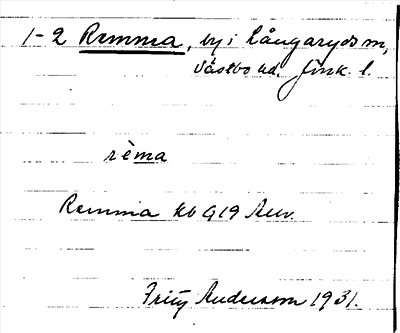 1-2 Remma, by i Långaryds sn,
Västbo hd. Jönk. l.
rèma
Remma kb G19 Auv.
Fritz Andersson 1931.